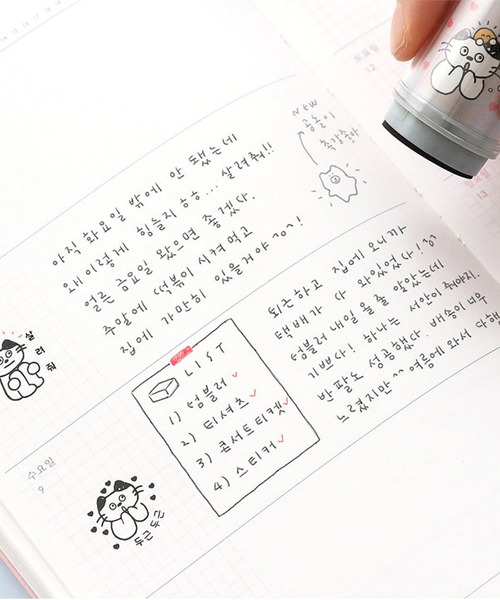 토요일
12
아직 화요일 밖에 안 됐는데
왜 이렇게 힘들지 ㅎㅎ... 살려줘!!
얼른 금요일 왔으면 좋겠다.
주말에 떡볶이 시켜 먹고
집에 가만히 있을거야 ^o^!
NEW
곰돌이
촉감좋아.
13
살
려
줘
퇴근하고 집에 오니까
택배가 다 와있었다!
텀블러 내일 올 줄 알았는데
기쁘다! 하나는 서안이 줘야지.
반팔도 성공했다. 배송이 너무
느렸지만 ^^ 여름에 와서 다행
LIST
1) 텀블러 ✓
2) 티셔츠 ✓
3) 콘서트티켓 ✓
4) 스티커 ✓
수요일
9
두근두근